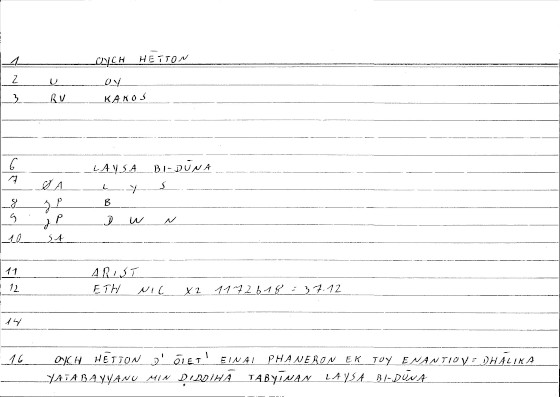 1 OYCH HĒTTON
2 U OY
3 RV KAKOS
6 LAYSA BI-DŪNA
7 ØA L Y S
8 gP B
9 gP D W N
10 SA
11 ARIST
12 ETH NIC X2 1172b18 = 37.12
14
16 OYCH HĒTTON D' ŌIET' EINAI PHANERON EK TOY ENANTIOY = DHĀLIKA
YATABAYYANU MIN ḌIDDIHĀ TABYĪNAN LAYSA BI-DŪNA